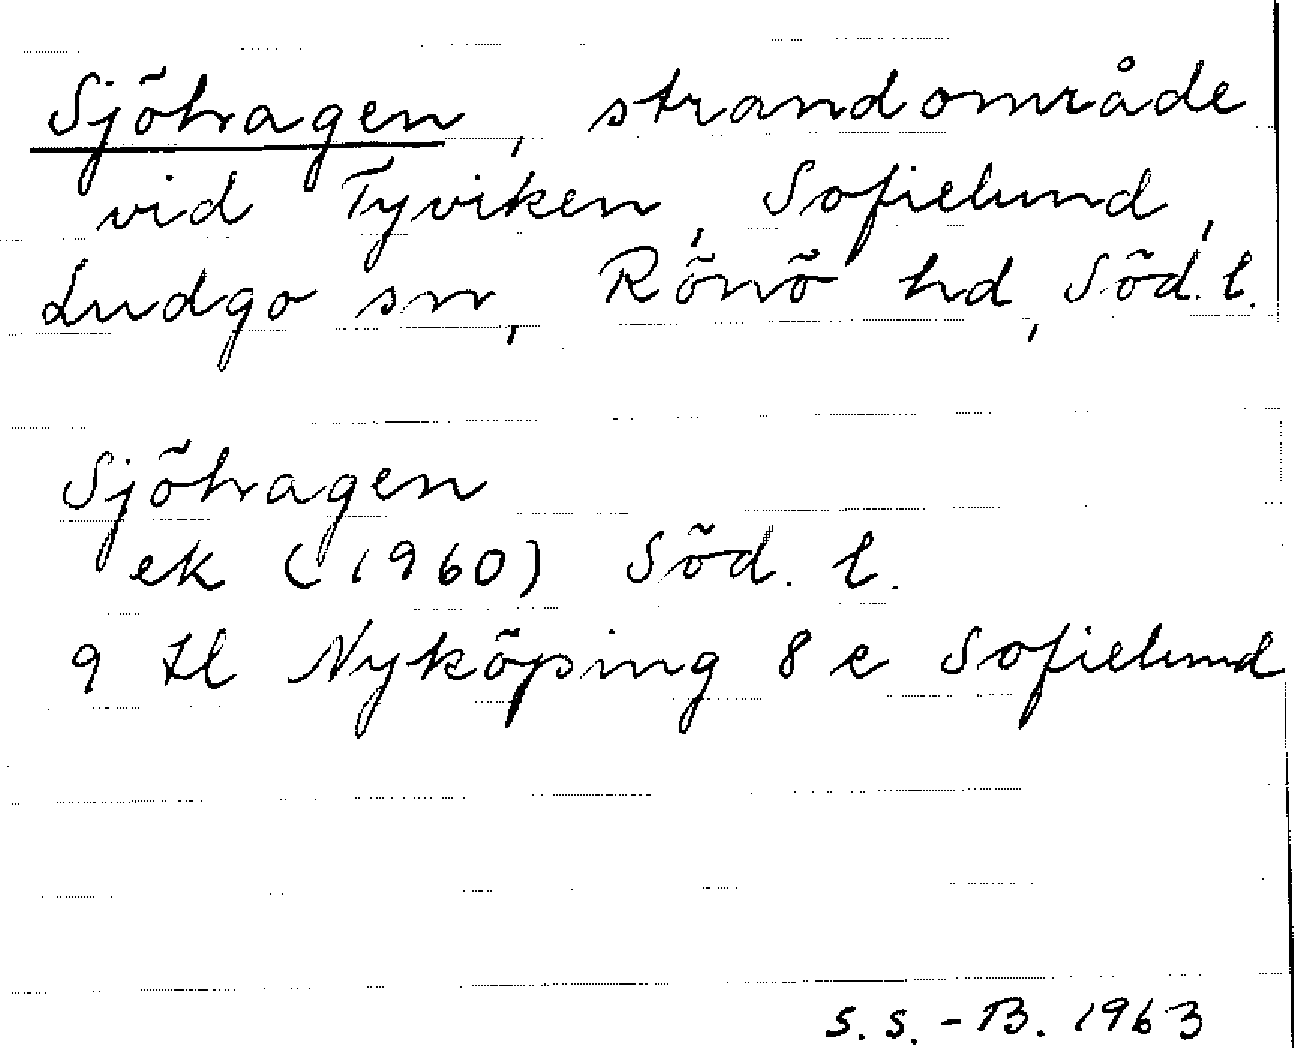 Sjöhagen, strandområde
vid Tyviken, Sofielund,
Ludgo sn, Rönö hd, Söd. l.
Sjöhagen
ek (1960) Söd. l.
9 Il Nyköping 8 e Sofielund
S. S. - B. 1963